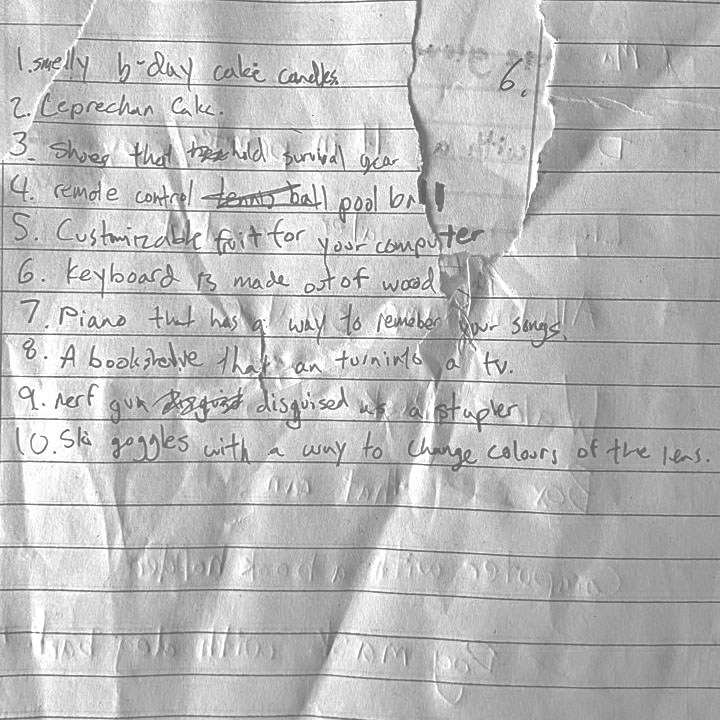 1. smelly b-day cake candles.
6.
2. Leprechan Cake.
3. Shoes that hold survival gear
4. remote control tennis ball pool ball
5. Custmizable fruit for your computer
6. Keyboard is made out of wood
7. Piano that has a way to remeber your songs.
8. A bookshelve that an turninto a tv.
9. nerf gun disguised as a stapler
10. Ski goggles with a way to change colours of the lens.
Computer with a book holder
Dog mask with dog bark